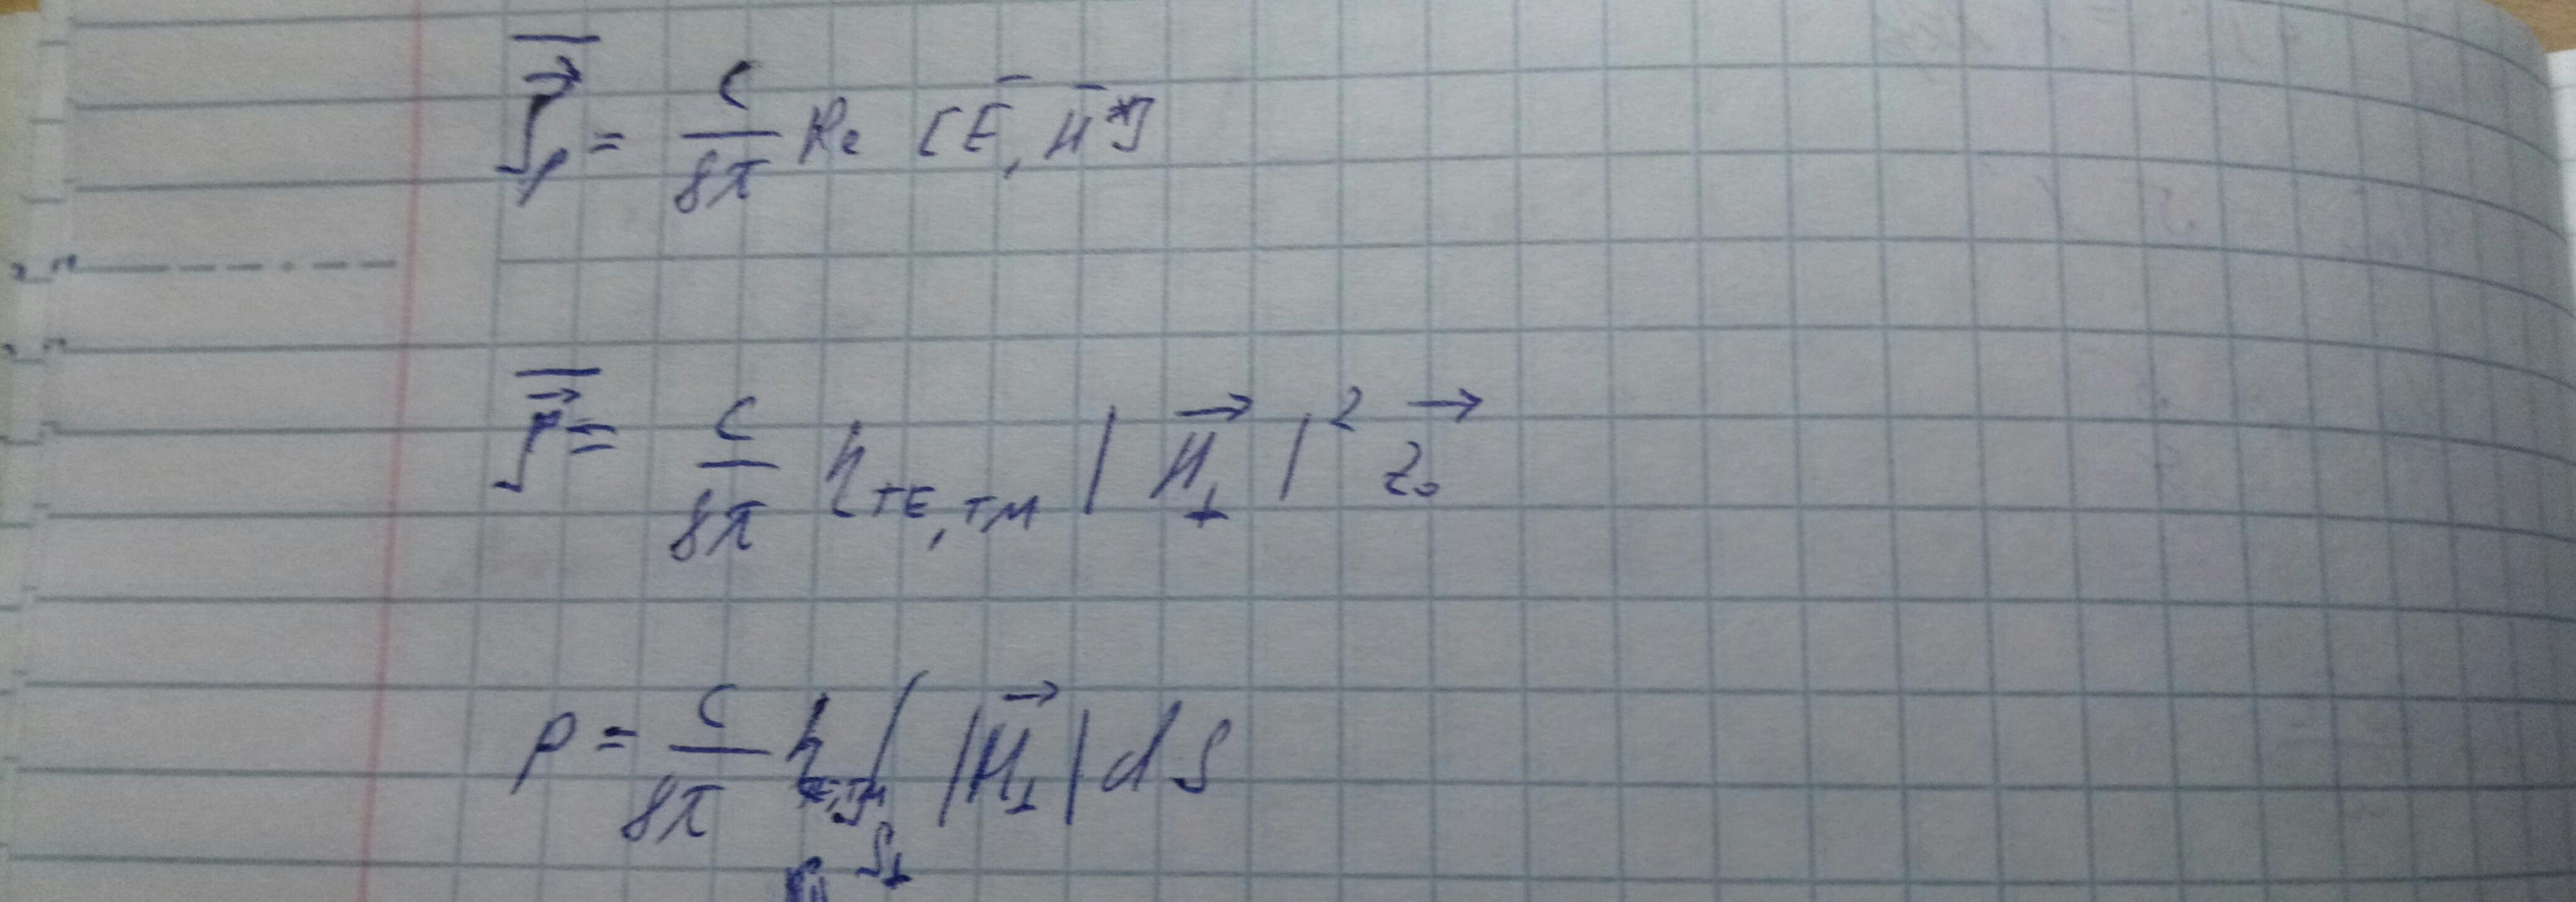 $\overline{\vec{S}}_p = \frac{c}{8\pi} Re [\bar{E}, \bar{H}^*]$
$\overline{\vec{S}} = \frac{c}{8\pi} \eta_{TE,TM} |\vec{H}_\perp|^2 \vec{z}_0$
$P = \frac{c}{8\pi} \eta_{TE,TM} \int_{S_\perp} |\vec{H}_\perp| dS$